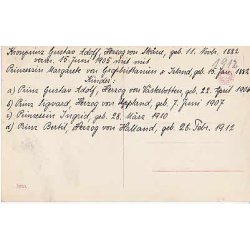 Kronprinz Gustav Adolf, Herzog von Skåne, geb. 11. Novb. 1882
verm. 15. Juni 1905 mit
Prinzessin Margarete von Großbritannien & Irland geb. 15. Jan. 1882
1912
Kinder:
a) Prinz Gustav Adolf, Herzog von Västerbotten geb. 22. April 1906
b) Prinz Sigvard, Herzog von Uppland, geb. 7. Juni 1907
c) Prinzessin Ingrid, geb. 28. März 1910
d) Prinz Bertil, Herzog von Halland, geb. 28. Febr. 1912